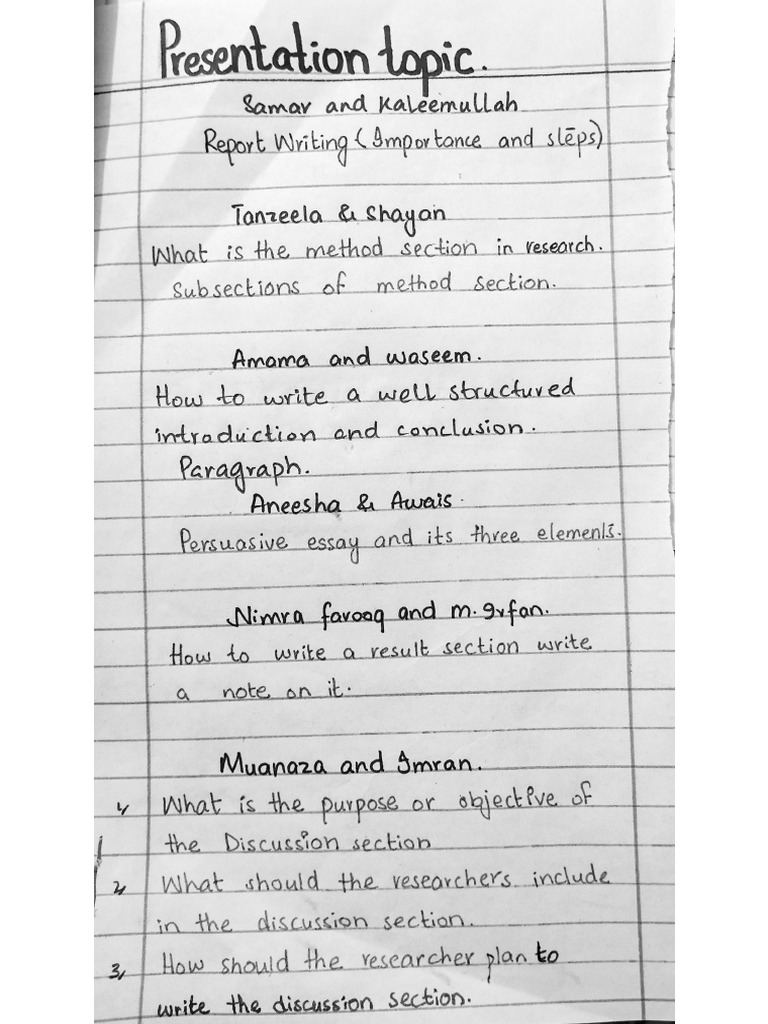 Presentation topic.
Samar and Kaleemullah
Report Writing (Importance and steps)
Tanzeela & Shayan
What is the method section in research.
Subsections of method section.
Amama and waseem.
How to write a well structured
introduction and conclusion.
Paragraph.
Aneesha & Awais.
Persuasive essay and its three elements.
Nimra farooq and M. Irfan.
How to write a result section write
a note on it.
Muanaza and Imran.
1, What is the purpose or objective of
the Discussion section
2, What should the researchers include
in the discussion section.
3, How should the researcher plan to
write the discussion section.